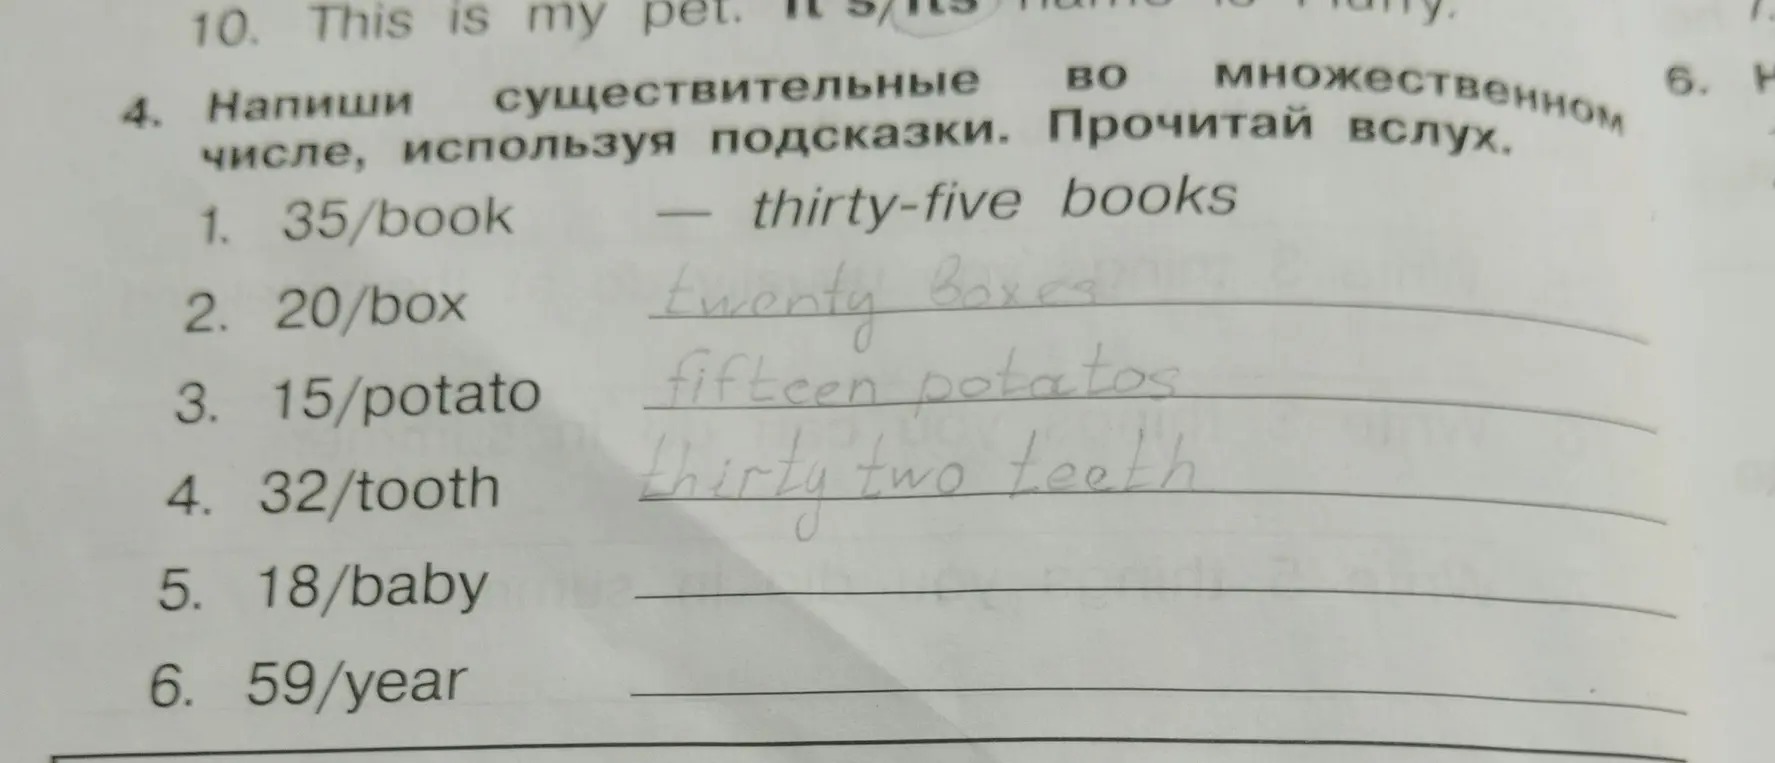 10. This is my pet. It's/Its name is Fluffy.
4. Напиши существительные во множественном
числе, используя подсказки. Прочитай вслух.
6.
1. 35/book — thirty-five books
2. 20/box twenty boxes
3. 15/potato fifteen potatos
4. 32/tooth thirty two teeth
5. 18/baby
6. 59/year